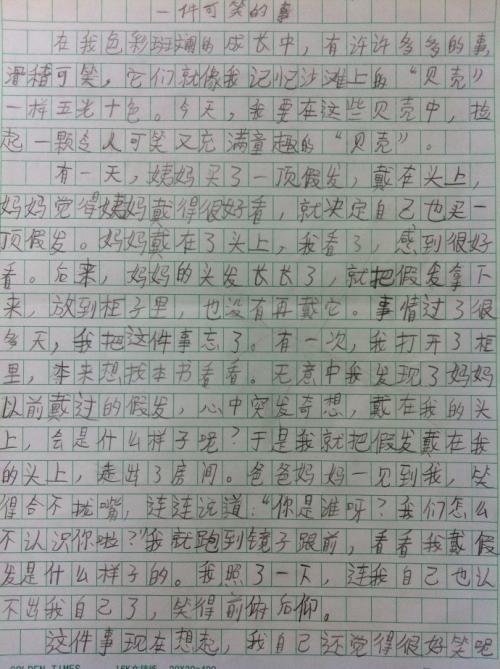 一件可笑的事
在我色彩斑斓的成长中，有许许多多的事，
滑稽可笑，它们就像我记忆沙滩上的“贝壳”
一样五光十色。今天，我要在这些贝壳中，捡
起一颗令人可笑又充满童趣的“贝壳”。
有一天，姨妈买了一顶假发，戴在头上，
妈妈觉得姨妈戴得很好看，就决定自己也买一
顶假发。妈妈戴在了头上，我看了，感到很好
看。后来，妈妈的头发长长了，就把假发拿下
来，放到柜子里，也没有再戴它。事情过了很
多天，我把这件事忘了。有一次，我打开了柜
里，本来想找本书看看。无意中我发现了妈妈
以前戴过的假发，心中突发奇想，戴在我的头
上，会是什么样子呢？于是我就把假发戴在我
的头上，走出了房间。爸爸妈妈一见到我，笑
得合不拢嘴，连连说道：“你是谁呀？我们怎么
不认识你啦？”我就跑到镜子跟前，看看我戴假
发是什么样子的。我照了一下，连我自己也认
不出我自己了，笑得前俯后仰。
这件事现在想起，我自己还觉得很好笑呢